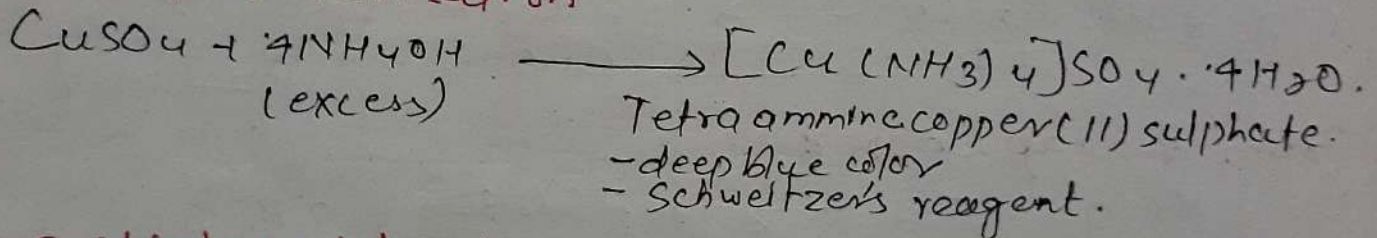 CuSO4 + 4NH4OH ⟶ [Cu(NH3)4]SO4 · 4H2O.
(excess)
Tetraamminecopper(II) sulphate.
- deep blue color
- Schweitzer's reagent.